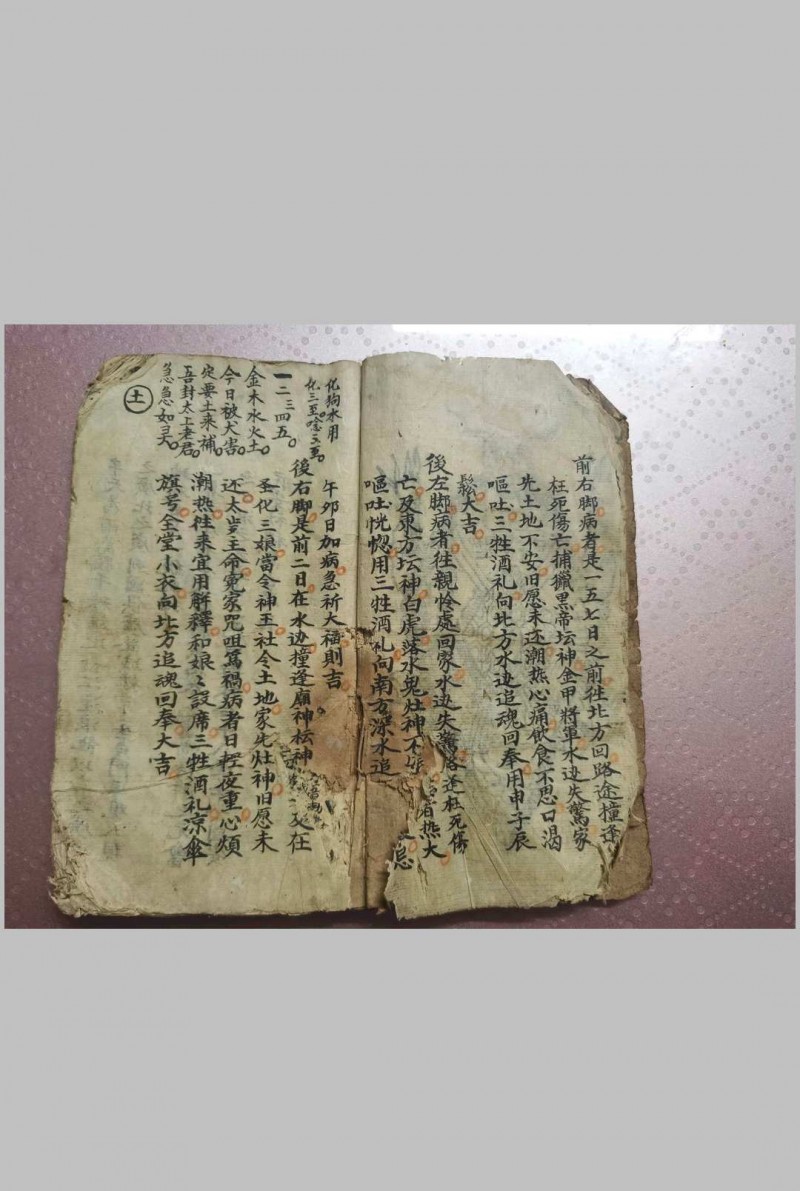 前右脚病者是一五七日之前往北方回路途撞逢
枉死傷亡捕獵黑帝坛神金甲將軍水边失驚家
先土地不安旧愿未还潮热心痛飲食不思口渴
嘔吐三牲酒礼向北方水边追魂回奉用申子辰
鬆大吉
後左脚病者往親怜處回家水边失驚路逢枉死傷
亡及東方坛神白虎落水鬼灶神不 热大
嘔吐恍惚用三牲酒礼向南方深水追 忌
午卯日加病急祈大福則吉
後右脚是前二日在水边撞逢廟神坛神 又在
圣化三娘當令神王社令土地家先灶神旧愿未
还太岁主命冤家咒咀為禍病者日輕夜重心煩
潮热往来宜用解釋和娘々設席三牲酒礼凉傘
旗号全堂小衣向北方追魂回奉大吉
化狗水用
化三至唸三至
一二三四五
金木水火土
今日被犬害
定要土来補
吾封太上老君
急急如
土